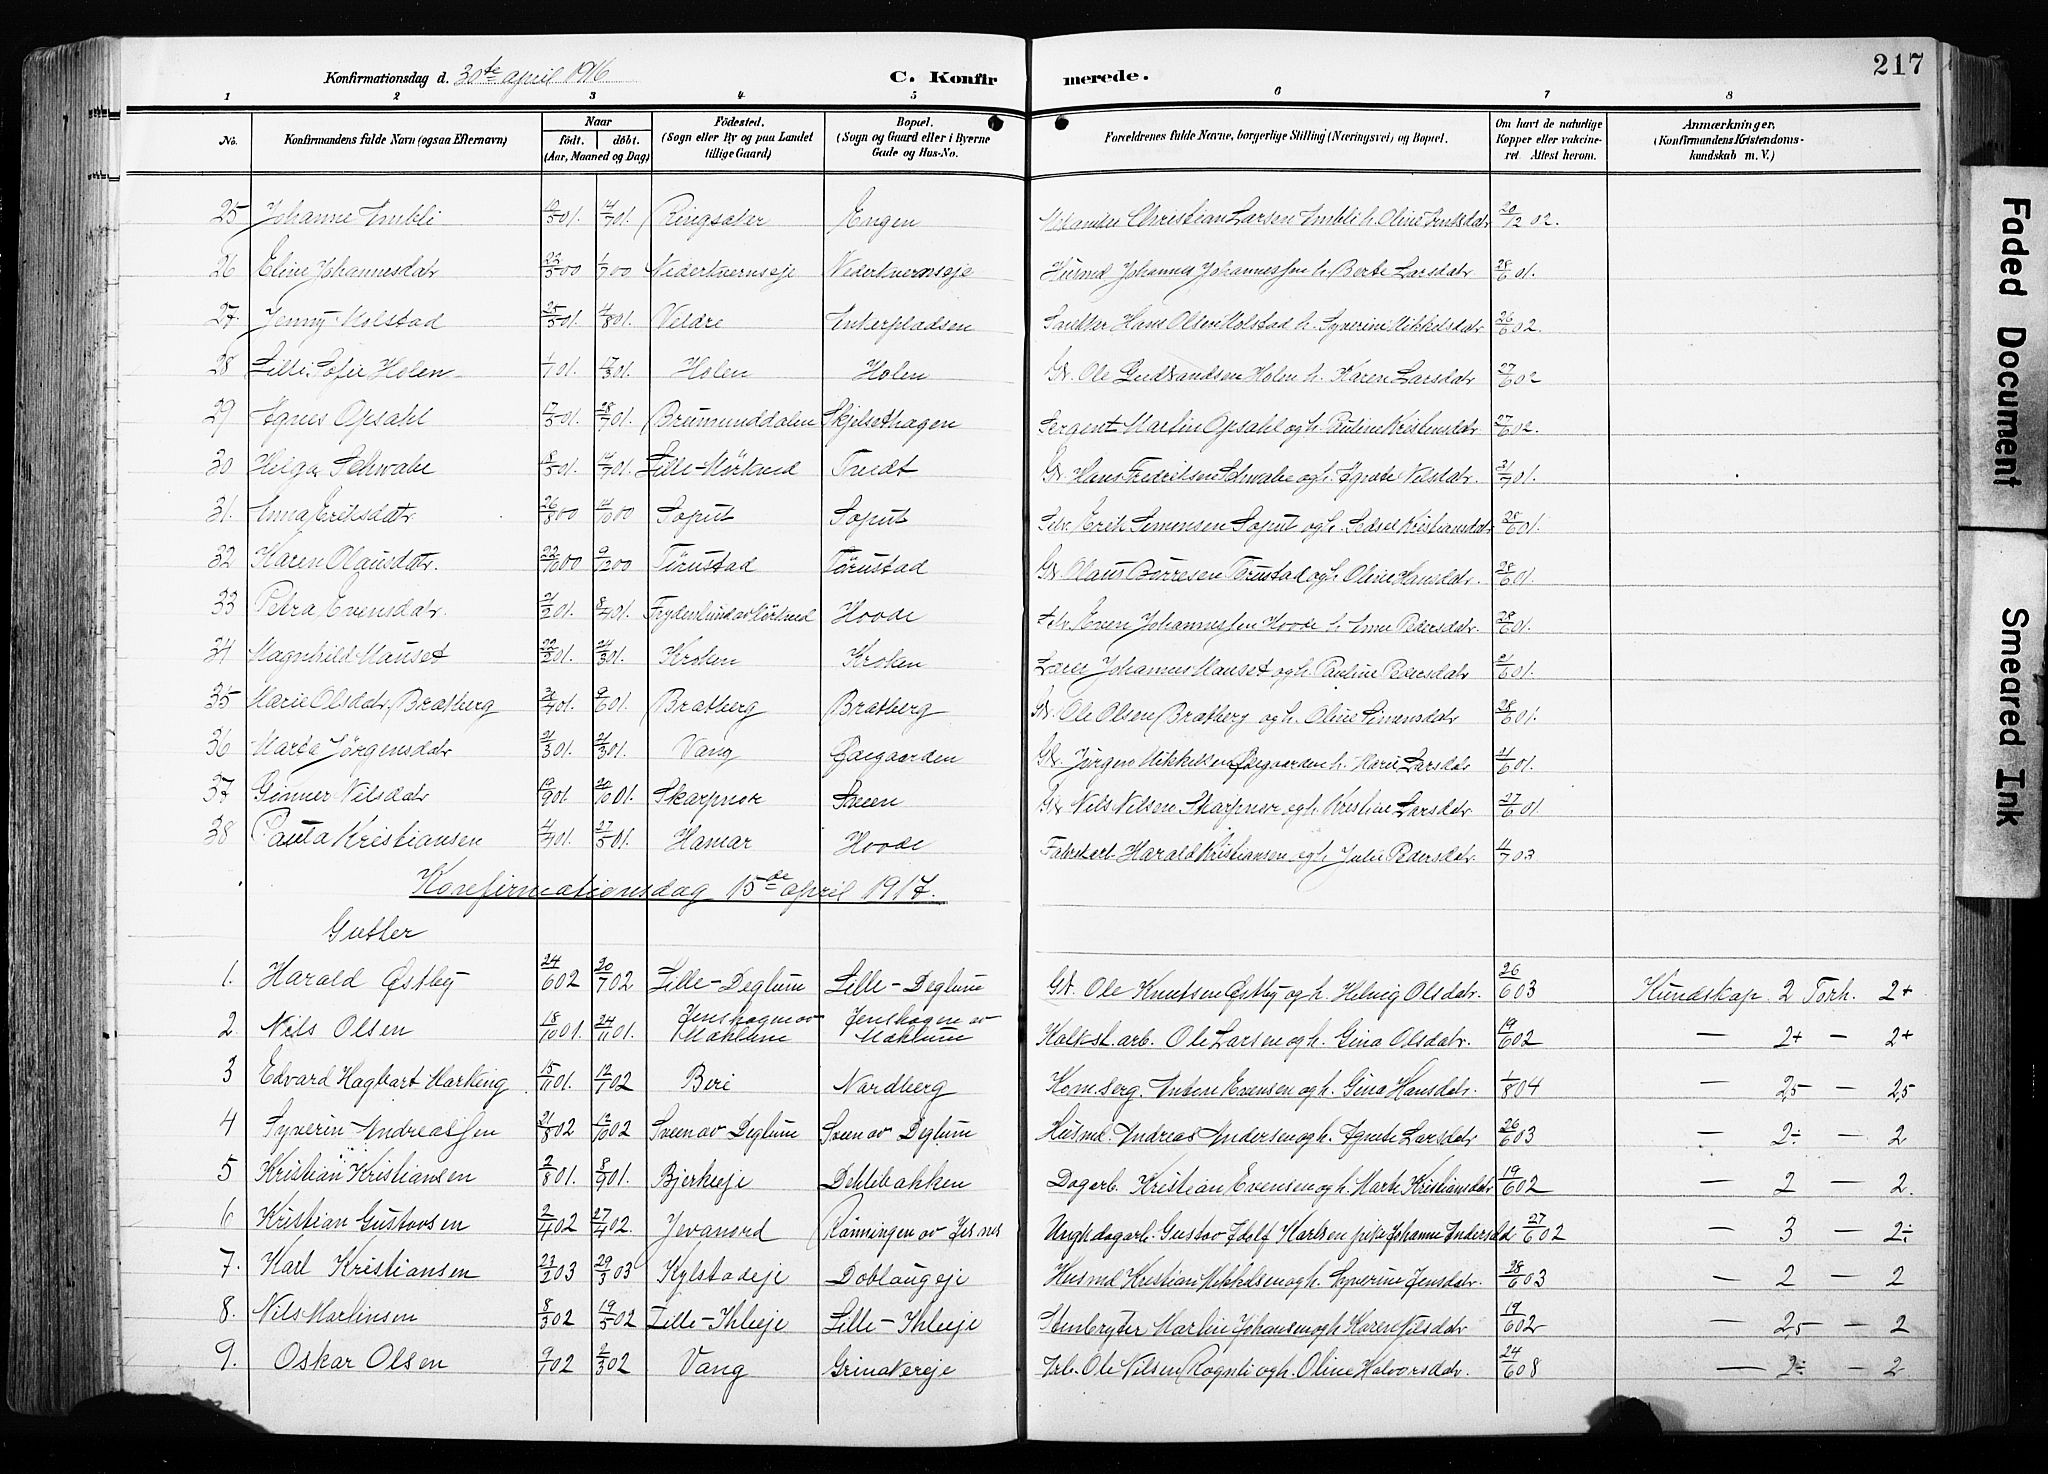 217
Konfirmationsdag d. 30te april 1916
C. Konfirmerede.
1 2 3 4 5 6 7 8
No. Konfirmandens fulde Navn (ogsaa Efternavn) Naar født. døbt. (Aar, Maaned og Dag) Fødested. (Sogn eller By og paa Landet tillige Gaard) Bopæl. (Sogn og Gaard eller i Byerne Gade og Hus-No. Forældrenes fulde Navne, borgerlige Stilling (Næringsvei) og Bopæl. Om havt de naturlige Kopper eller vaccineret. Attest herom. Anmærkninger. (Konfirmandens Kristendomskundskab m. V.)
25 Johanne Embli 19/5 01. 14/7 01. Ringsaker Engen Christian Larsen Embli h. Oline 20/12 02.
26 Eline Johannesdatr 22/5 00 1/7 00 Nederkvernseje Nederkvernseje Husmd Johannes Johannessen h. Berte Larsdatr 28/6 01.
27 Jenny Molstad 25/5 01. 4/8 01. Veldre Enkerpladsen Hans Olsen Molstad h. Syverine Mikkelsdatr 26/6 02.
28 Lilli Sofie Holen 1/1 01. 17/3 01. Holen Holen Gr. Ole Gudbrandsen Holen h. Karen Larsdatr 27/6 02
29 Agnes Opsahl 17/5 01. 28/7 01. Brumunddalen Skjelsethagen Sergent Martin Opsahl og h. Pauline Kristensdatr 27/6 02.
30 Helga Schwabe 8/5 01. 14/7 01. Lille-Mørkved Tvedt Gr. Hans Fredriksen Schwabe og h. Agnete Nilsdatr. 21/7 01.
31. Emma Eriksdatr. 26/8 00 14/10 00 Soput Soput Selv. Erik Simensen Soput og h. Sidsel Kristiansdatr 28/6 01.
32 Karen Olausdatr. 22/10 00 9/12 00 Tørustad Tørustad Gr. Olaus Børresen Tørustad og h. Oline Hansdatr. 28/6 01.
33 Petra Evensdatr. 2/2 01. 8/4 01. Frydenlund av Mørkved Hovde Selv. Even Johannessen Hovde h. Pedersdatr. 28/6 01.
34 Magnhild Mauset 22/2 01. 24/3 01. Kroken Kroken Lærer Johannes Mauset og h. Pauline Pedersdatr. 21/6 01.
35 Marie Olsdatr. Bratberg 9/6 01. Bratberg Bratberg Gr. Ole Olsen Bratberg og h. Oline Simensdatr 28/6 01.
36 Marta Jørgensdatr 2/3 01. 21/3 01. Vang Gr. Jørgen Mikkelsen h. Marie Larsdatr 21/6 01.
37 Gunner Nilsdatr 19/9 01 20/10 01. Skarpnor Sveen Gr Nils Nilsen Skarpnor og h. Kristine Larsdatr. 27/6 01.
38 Paula Kristiansen 4/4 01. 27/5 01. Hamar Hovde Fabrikarb. Harald Kristiansen og h. Julie Pedersdatr. 4/7 03
Konfirmationsdag 15de april 1917.
Gutter
1. Harald Østby 24/6 02 20/7 02 Lille-Deglum Lille-Deglum Gr. Ole Knutsen Østby og h. Helvig Olsdatr. 26/6 03 Kundskap 2 Forh. 2+
2. Nils Olsen 18/10 01. 24/11 01. Jenshagen av Maklum Jenshagen av Maklum Kalkst. arb. Ole Larsen og h. Gina Olsdatr. 19/6 02 — 2+ — 2+
3 Edvard Hagbart Marking 15/11 01. 12/1 02 Beri Nordberg Kom. serg. Anton Evensen og h. Gina Hansdatr. 1/8 04 — 2,5 — 2,5
4 Syverin Andreassen 21/8 02 12/10 02 Sveen av Deglum Sveen av Deglum Husmd. Andreas Andersen og h. Agnete Larsdatr 26/6 03 — 2÷ — 2
5 Kristian Kristiansen 2/8 01. 8/9 01. Bjerkeeje Dehlibakken Dagarb. Kristian Evensen og h. Marte Kristiansdatr 19/6 02 — 2 — 2.
6 Kristian Gustavsen 2/4 02 27/4 02. Jevanord Rønningen av Jesnes Ungk dagarb. Gustav Adolf Karlsen pike Johanne Andersd 27/6 02 — 3 — 2÷
7. Karl Kristiansen 23/2 03 29/3 03 Kylstadeje Doblougeje Husmd Kristian Mikkelsen og h. Syverine Jensdatr. 28/6 03 — 2 — 2
8. Nils Martinsen 8/3 02 19/5 02 Lille-Ihleeje Lille-Ihleeje Stenbryter Martin Johansen og h. Karen Nilsdatr 19/6 02 — 2,5 — 2
9. Oskar Olsen 9/1 02 2/3 02 Vang Grinakereje Arb. Ole Nilsen Rognli og h. Oline Halvorsdatr. 24/6 08 — 2÷ — 2
Faded Document
Smeared Ink